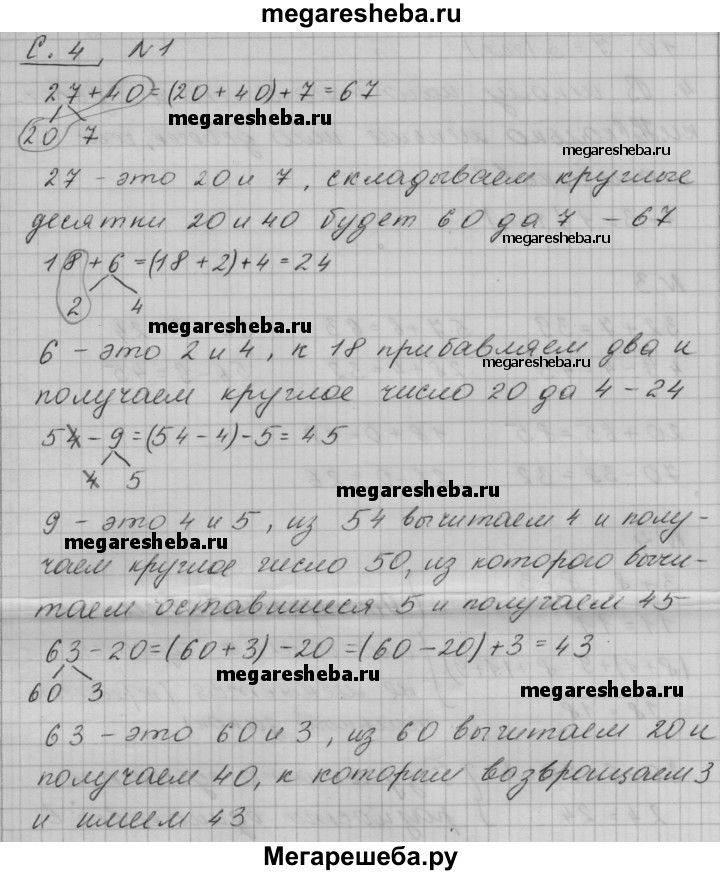 megaresheba.ru
С. 4, N 1
27 + 40 = (20 + 40) + 7 = 67
20 7
megaresheba.ru
megaresheba.ru
27 - это 20 и 7, складываем круглые
десятки 20 и 40 будет 60 да 7 - 67
megaresheba.ru
18 + 6 = (18 + 2) + 4 = 24
2 4
megaresheba.ru
6 - это 2 и 4, к 18 прибавляем два и
megaresheba.ru
получаем круглое число 20 да 4 - 24
54 - 9 = (54 - 4) - 5 = 45
4 5
megaresheba.ru
9 - это 4 и 5, из 54 вычитаем 4 и полу-
megaresheba.ru
чаем круглое число 50, из которого вычи-
таем оставшиеся 5 и получаем 45
63 - 20 = (60 + 3) - 20 = (60 - 20) + 3 = 43
60 3
megaresheba.ru
megaresheba.ru
63 - это 60 и 3, из 60 вычитаем 20 и
получаем 40, к которым возвращаем 3
и имеем 43
Мегарешеба.ру